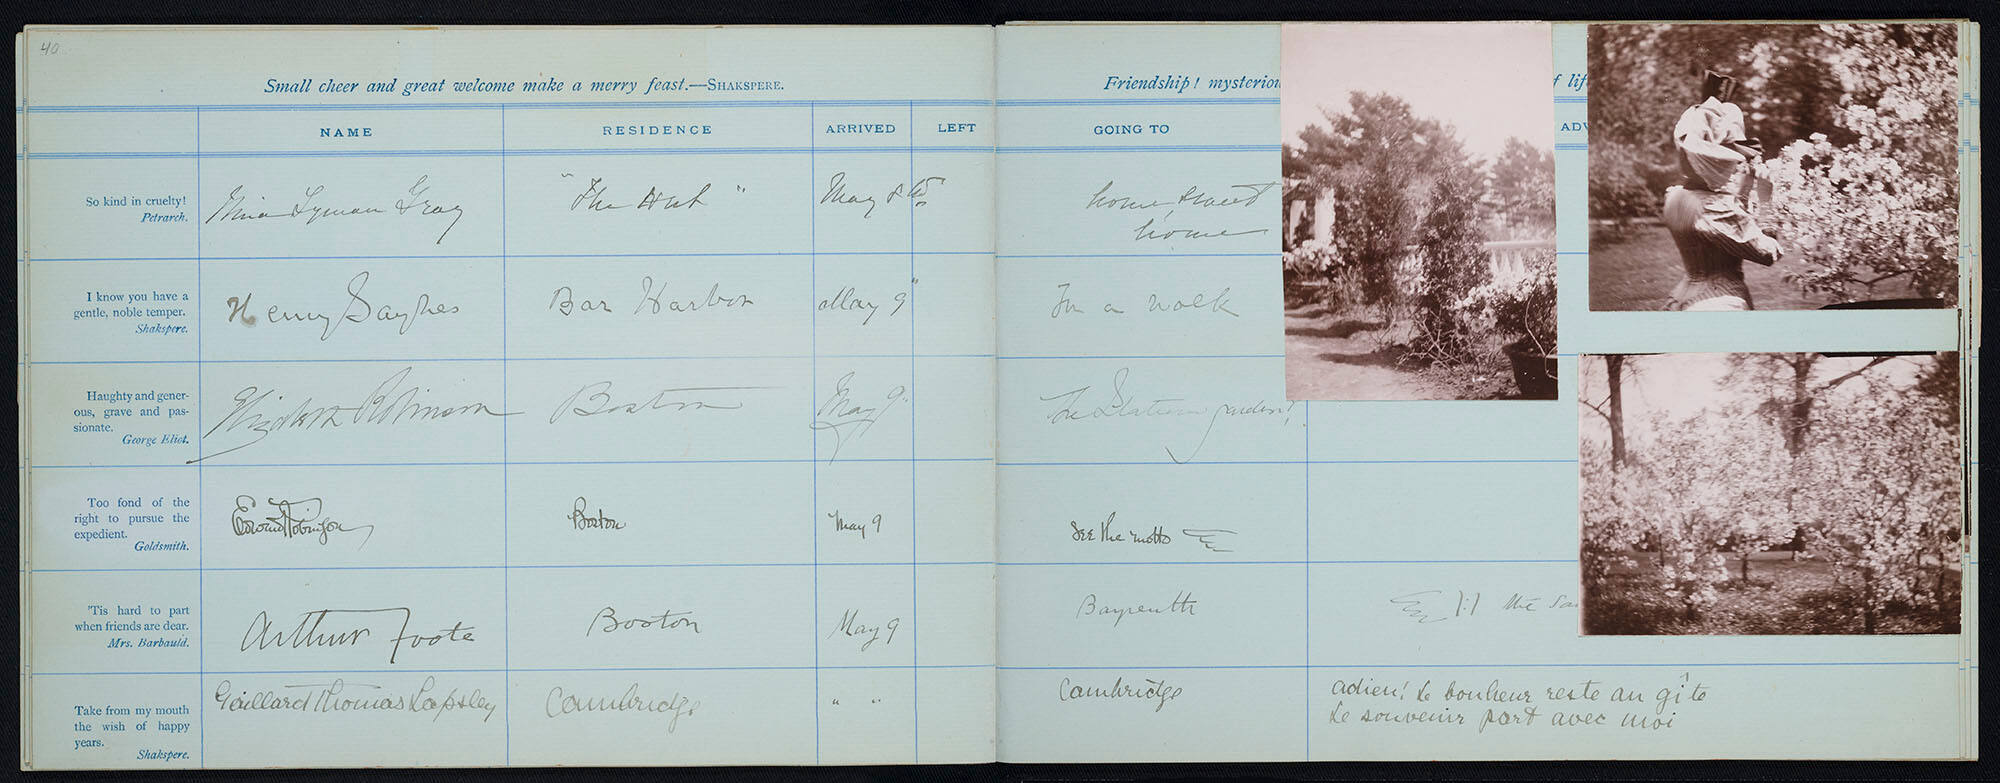 40
Small cheer and great welcome make a merry feast.—SHAKSPERE.
NAME RESIDENCE ARRIVED LEFT
So kind in cruelty!
Petrarch.
Mina Lyman Gray "The Hut" May 8
I know you have a
gentle, noble temper.
Shakspere.
Henry Bar Harbor May 9"
Haughty and gener-
ous, grave and pas-
sionate.
George Eliot.
Elizabeth Robinson Boston May 9"
Too fond of the
right to pursue the
expedient.
Goldsmith.
Edward Robinson Boston May 9
'Tis hard to part
when friends are dear.
Mrs. Barbauld.
Arthur Foote Boston May 9
Take from my mouth
the wish of happy
years.
Shakspere.
Gaillard Thomas Lapsley Cambridge " "
Friendship! mysteriou
f lif
GOING TO
ADV
home, sweet
home
In a walk
The garden!
See the motto
Bayreuth
the
Cambridge
adieu! Le bonheur reste au gîte
Le souvenir part avec moi